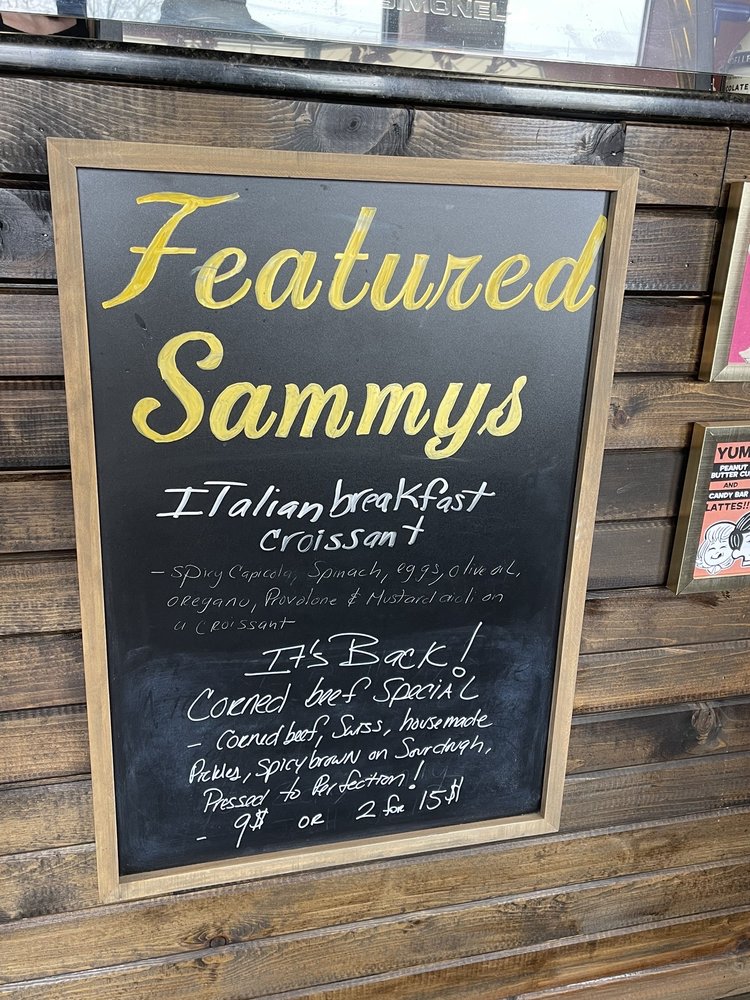 SIMONEL
OLATE
Featured
Sammys
Italian breakfast
croissant
- Spicy Capicola, Spinach, eggs, olive oil,
oregano, Provolone & Mustard aioli on
a croissant
It's Back!
Corned beef Special
- Corned beef, Swiss, housemade
Pickles, Spicy brown on Sourdough,
Pressed to Perfection!
- 9$ or 2 for 15$!
YUM
PEANUT
BUTTER CU
AND
CANDY BAR
LATTES!!